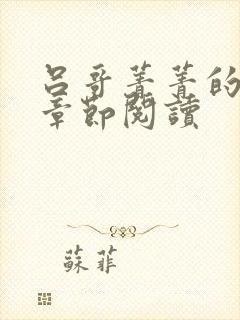 呂哥菁菁的
章節閱讀
蘇菲